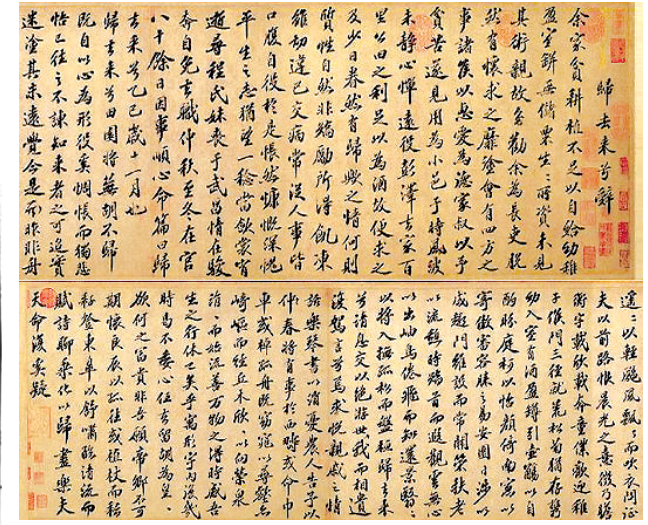 歸去來兮辭
余家貧耕植不足以自給幼稚
盈室缾無儲粟生生所資未見
其術親故多勸余為長吏脫
然有懷求之靡途會有四方之
事諸侯以惠愛為德家叔以予
貧苦遂見用為小邑于時風波
未靜心憚遠役彭澤去家百
里公田之利足以為酒故便求之
及少日眷然有歸與之情何則
質性自然非矯勵所得飢凍
雖切違已交病嘗從人事皆
口腹自役於是悵然慷慨深愧
平生之志猶望一稔當斂裳宵
逝尋程氏妹喪于武昌情在駿
奔自免去職仲秋至冬在官
八十餘日因事順心命篇曰歸
去来兮乙巳歲十一月也
歸去来兮田園將蕪胡不歸
既自以心為形役奚惆悵而獨悲
悟已往之不諫知来者之可追實
迷塗其未遠覺今是而昨非舟
遙遙以輕颺風飄飄而吹衣問征
夫以前路恨晨光之熹微乃瞻
衡宇載欣載奔童僕歡迎稚
子候門三徑就荒松菊猶存攜
幼入室有酒盈樽引壺觴以自
酌眄庭柯以怡顏倚南窗以
寄傲審容膝之易安園日涉以
成趣門雖設而常關策扶老
以流憩時矯首而遐觀雲無心
以出岫鳥倦飛而知還景翳翳
以將入撫孤松而盤桓歸去来
兮請息交以絕游世與我而相遺
復駕言兮焉求悅親戚之情
話樂琴書以消憂農人告予以
仲春將有事於西疇或命巾
車或棹孤舟既窈窕以尋壑亦
崎嶇而經丘木欣欣以向榮泉
涓涓而始流善萬物之得時感吾
生之行休已矣乎寓形宇內復幾
時曷不委心任去留胡為遑遑
欲何之富貴非吾願帝鄉不可
期懷良辰以孤往或植杖而耘
耔登東皋以舒嘯臨清流而
賦詩聊乘化以歸盡樂夫
天命復奚疑